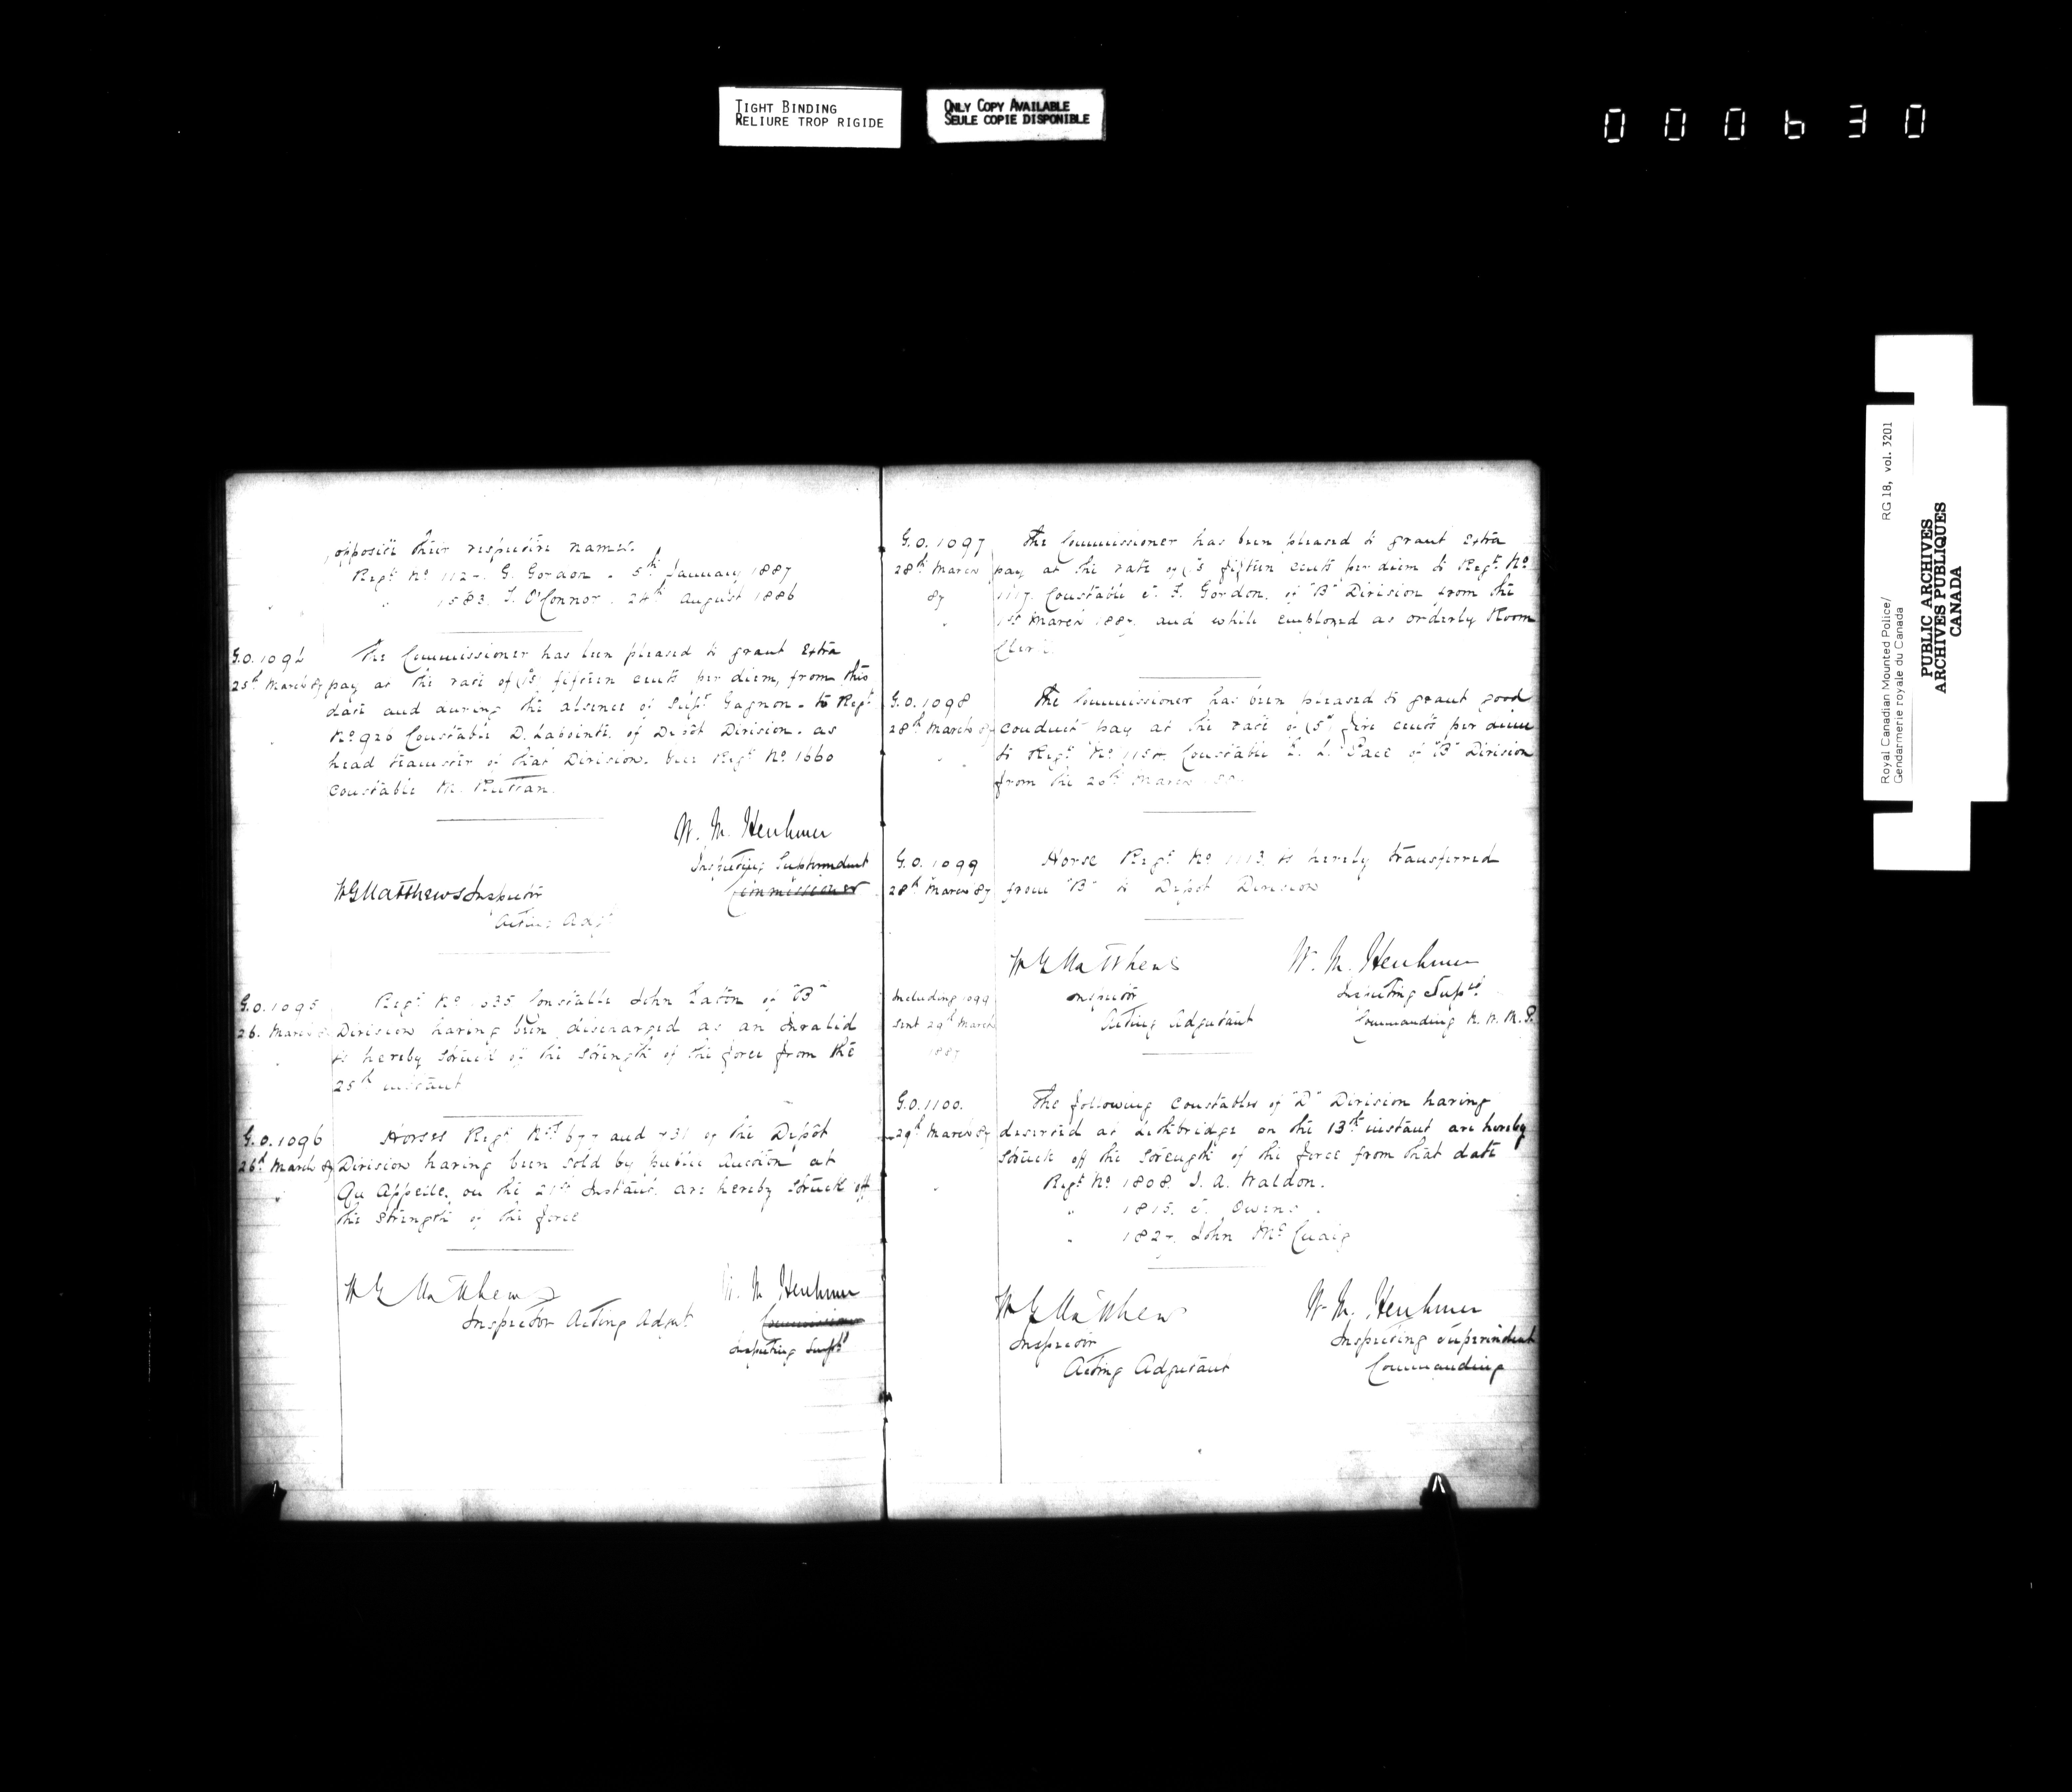 TIGHT BINDING
RELIURE TROP RIGIDE
ONLY COPY AVAILABLE
SEULE COPIE DISPONIBLE
000630
opposite their respective names.
Regt No G. Gordon . 5th January 1887
" 1583. O'Connor . 24th August 1886
G.O. 1094 The Commissioner has been pleased to grant Extra
25th March 87 pay at the rate of fifteen cents per diem, from this
date and during the absence of Supt Gagnon - to Regt
No 920 Constable D. Lapointe of Depôt Division. as
head teamster of that Division. Vice Regt No 1660
Constable M. Ruttan.
W. M. Herchmer
Inspecting Superintendent
Commissioner
WG Matthews Inspector
Acting Adjt
G.O. 1095 Regt No Constable John Eaton of "B"
26. March Division having been discharged as an Invalid
is hereby struck off the strength of the force from the
25th instant
G.O. 1096 Horses Regt Nos and of the Depôt
26th March 87 Division having been sold by Public Auction at
Qu Appelle, on the 21st Instant. are hereby struck off
the strength of the force
WG Matthews
Inspector Acting Adjut
W. M. Herchmer
Commissioner
Inspecting Supt
G.O. 1097 The Commissioner has been pleased to grant Extra
28th March pay at the rate of fifteen cents per diem to Regt No
87 Constable Gordon. of "B" Division from the
1st March 1887. and while employed as orderly Room
Clerk.
G.O. 1098 The Commissioner has been pleased to grant good
28th March 87 conduct pay at the rate of (5) five cents per diem
to Regt No Constable Pace of "B" Division
from the March
G.O. 1099 Horse Regt No 1113 is hereby transferred
28th March 87 from "B" to Depôt Division
WG Matthews
Inspector
Acting Adjutant
W. M. Herchmer
Inspecting Supt
Commanding N. W. M. P.
Including 1099
sent 29th March
1887
G.O. 1100. The following Constables of "D" Division having
29th March 87 deserted at Lethbridge on the 13th instant are hereby
struck off the strength of the force from that date
Regt No 1808. J. A. Waldon.
" 1815. J. Owens .
" 1827. John McCuaig
WG Matthews
Inspector
Acting Adjutant
W. M. Herchmer
Inspecting Superindent
Commanding
Royal Canadian Mounted Police/
Gendarmerie royale du Canada
RG 18, vol. 3201
PUBLIC ARCHIVES
ARCHIVES PUBLIQUES
CANADA